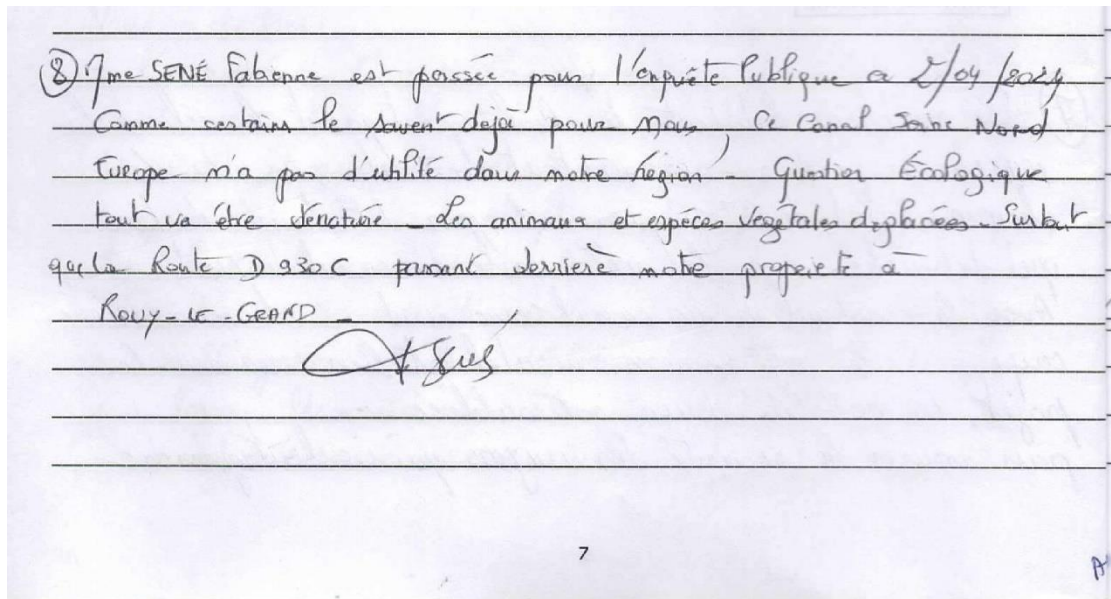 ⑧ Mme SENÉ Fabienne est passée pour l'enquête Publique a 2/04/2024
Comme certains le savent dejà pour nous, Ce Canal Seine Nord
Europe n'a pas d'utilité dans notre région - Question Écologique
tout va être dénaturée - Les animaux et espéces végétales déplacées. Surtout
que la Route D 930 C passant derriere notre propriete a
ROUY-LE-GRAND -
7